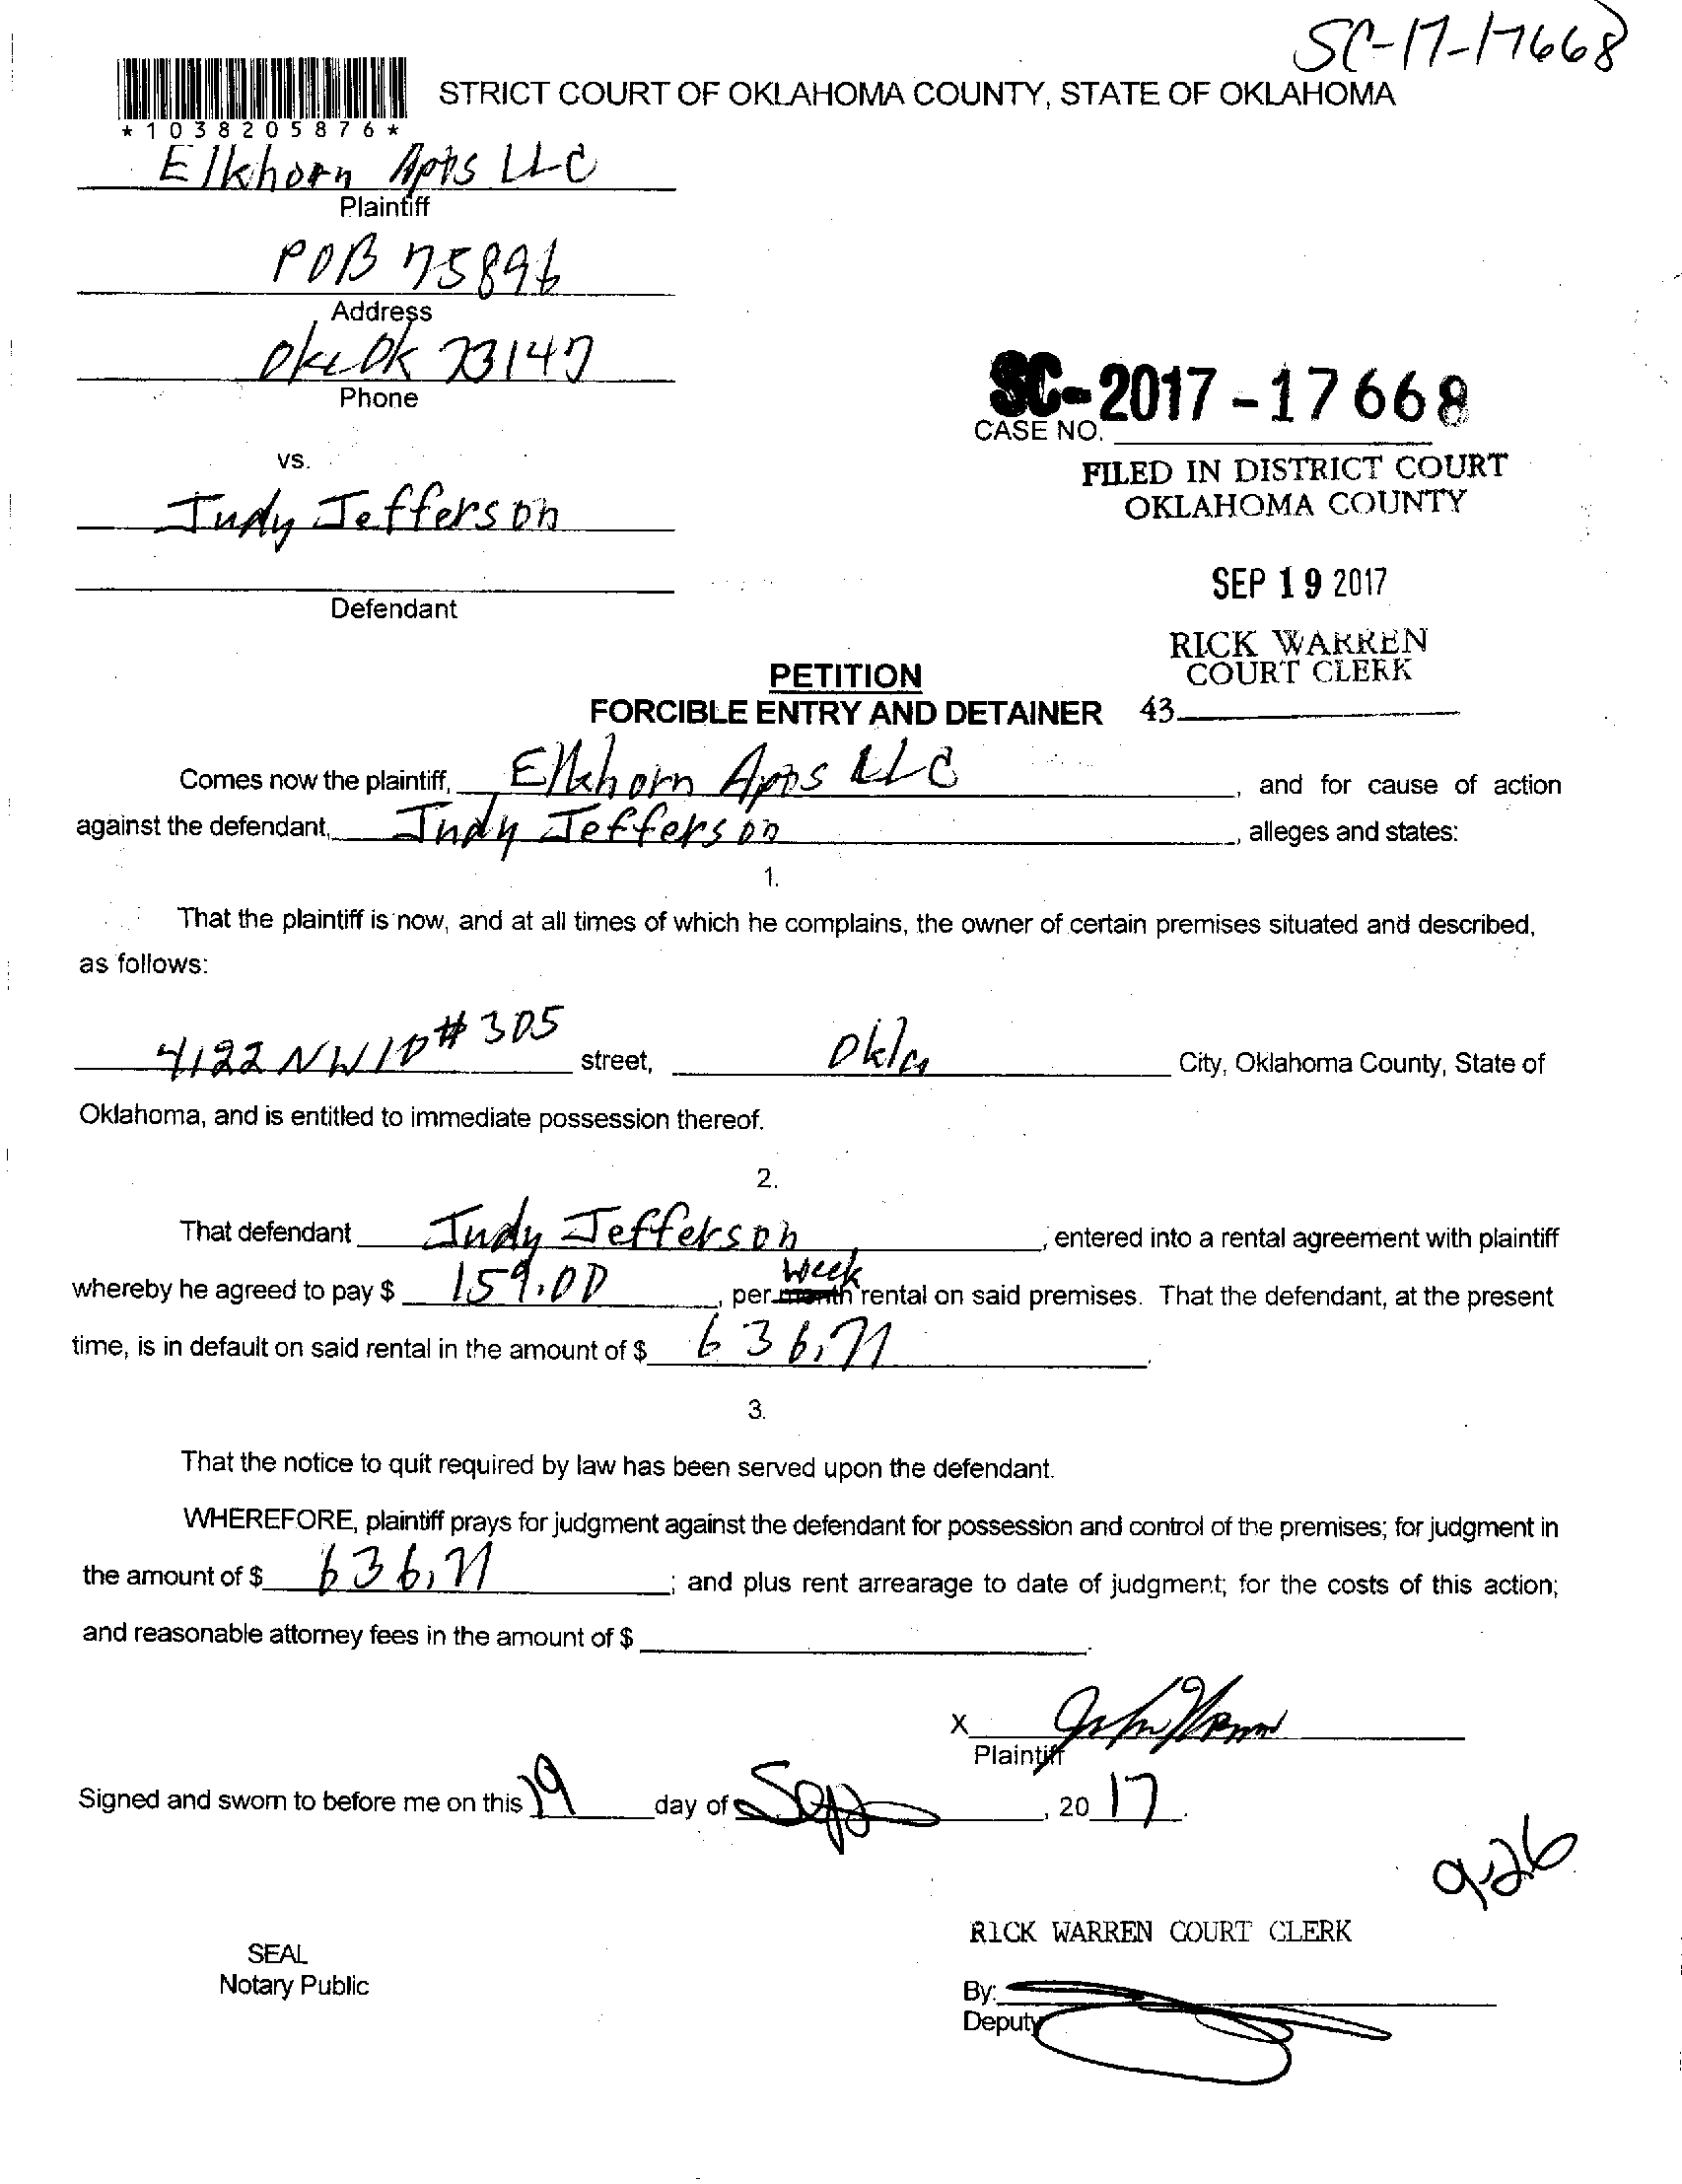 SC-17-17668
STRICT COURT OF OKLAHOMA COUNTY, STATE OF OKLAHOMA
*1038205876*
Elkhorn Apts LLC
Plaintiff
POB 75896
Address
Okc Ok 73147
Phone
SC-2017-17668
CASE NO.
vs.
FILED IN DISTRICT COURT
OKLAHOMA COUNTY
Judy Jefferson
SEP 19 2017
Defendant
RICK WARREN
COURT CLERK
PETITION
FORCIBLE ENTRY AND DETAINER 43
Comes now the plaintiff, Elkhorn Apts LLC, and for cause of action
against the defendant, Judy Jefferson, alleges and states:
1.
That the plaintiff is now, and at all times of which he complains, the owner of certain premises situated and described,
as follows:
4122 NW10 #305 street, Okla City, Oklahoma County, State of
Oklahoma, and is entitled to immediate possession thereof.
2.
That defendant Judy Jefferson, entered into a rental agreement with plaintiff
week
whereby he agreed to pay $ 159.00, per month rental on said premises. That the defendant, at the present
time, is in default on said rental in the amount of $ 636.71.
3.
That the notice to quit required by law has been served upon the defendant.
WHEREFORE, plaintiff prays for judgment against the defendant for possession and control of the premises; for judgment in
the amount of $ 636.71; and plus rent arrearage to date of judgment; for the costs of this action;
and reasonable attorney fees in the amount of $ .
X
Plaintiff
Signed and sworn to before me on this 19 day of Sep, 2017.
9-26
RICK WARREN COURT CLERK
SEAL
Notary Public
By:
Deputy